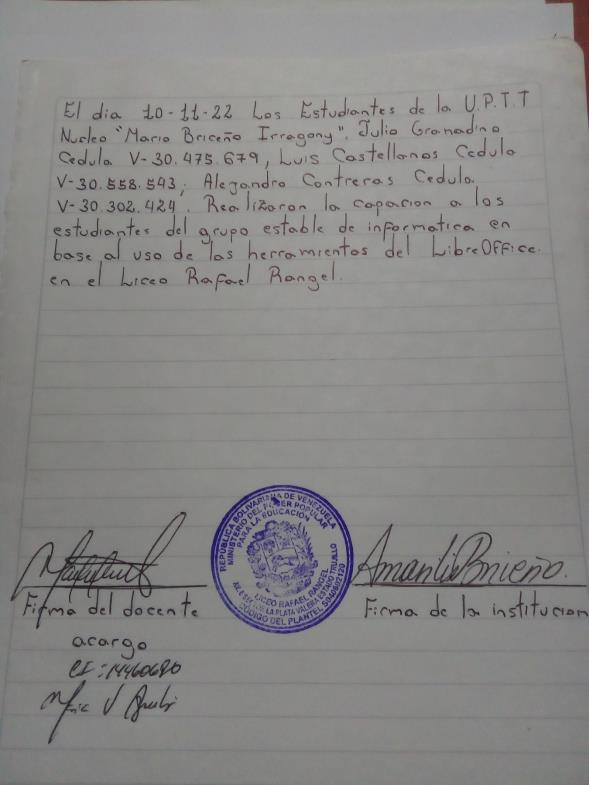 El dia 10-11-22 Los Estudiantes de la U.P.T.T
Nucleo "Mario Briceño Irragony". Julio Granadino
Cedula V-30.475.679, Luis Castellanos Cedula
V-30.558.543; Alejandro Contreras Cedula
V-30.302.424. Realizaron la capacion a los
estudiantes del grupo estable de informatica en
base al uso de las herramientos del LibreOffice.
en el Liceo Rafael Rangel.
REPÚBLICA BOLIVARIANA DE VENEZUELA
MINISTERIO DEL PODER POPULAR
PARA LA EDUCACIÓN
LICEO RAFAEL RANGEL
LA PLATA VALERA ESTADO TRUJILLO
CÓDIGO DEL PLANTEL
Amanlis Briceño.
Firma del docente
Firma de la institucion
acargo
CI: 14460620